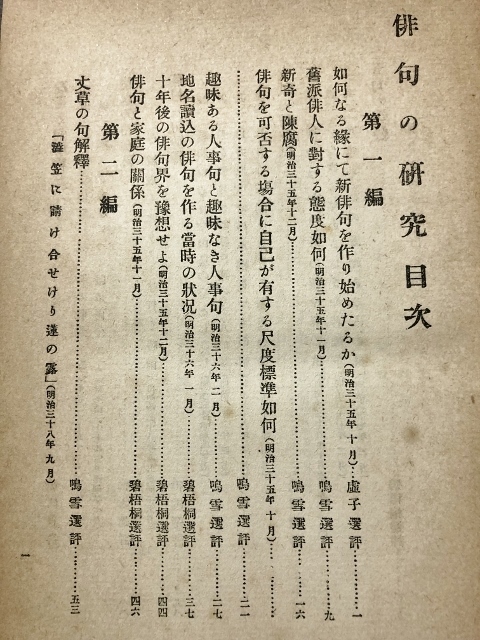 俳句の研究目次
第一編
如何なる縁にて新俳句を作り始めたるか(明治三十五年十月)…虚子選評……一
舊派俳人に對する態度如何(明治三十五年十一月)……鳴雪選評……九
新奇と陳腐(明治三十五年十二月)……鳴雪選評……一六
俳句を可否する塲合に自己が有する尺度標準如何(明治三十五年十月)……
……鳴雪選評……二一
趣味ある人事句と趣味なき人事句(明治三十六年二月)……鳴雪選評……二七
地名讀込の俳句を作る當時の狀况(明治三十六年一月)……碧梧桐選評……三七
十年後の俳句界を豫想せよ(明治三十五年十二月)……碧梧桐選評……四四
俳句と家庭の關係(明治三十五年十一月)……碧梧桐選評……四六
第二編
丈草の句解釋……鳴雪選評……五三
「澁笠に請け合せけり蓮の露」(明治三十八年九月)
一